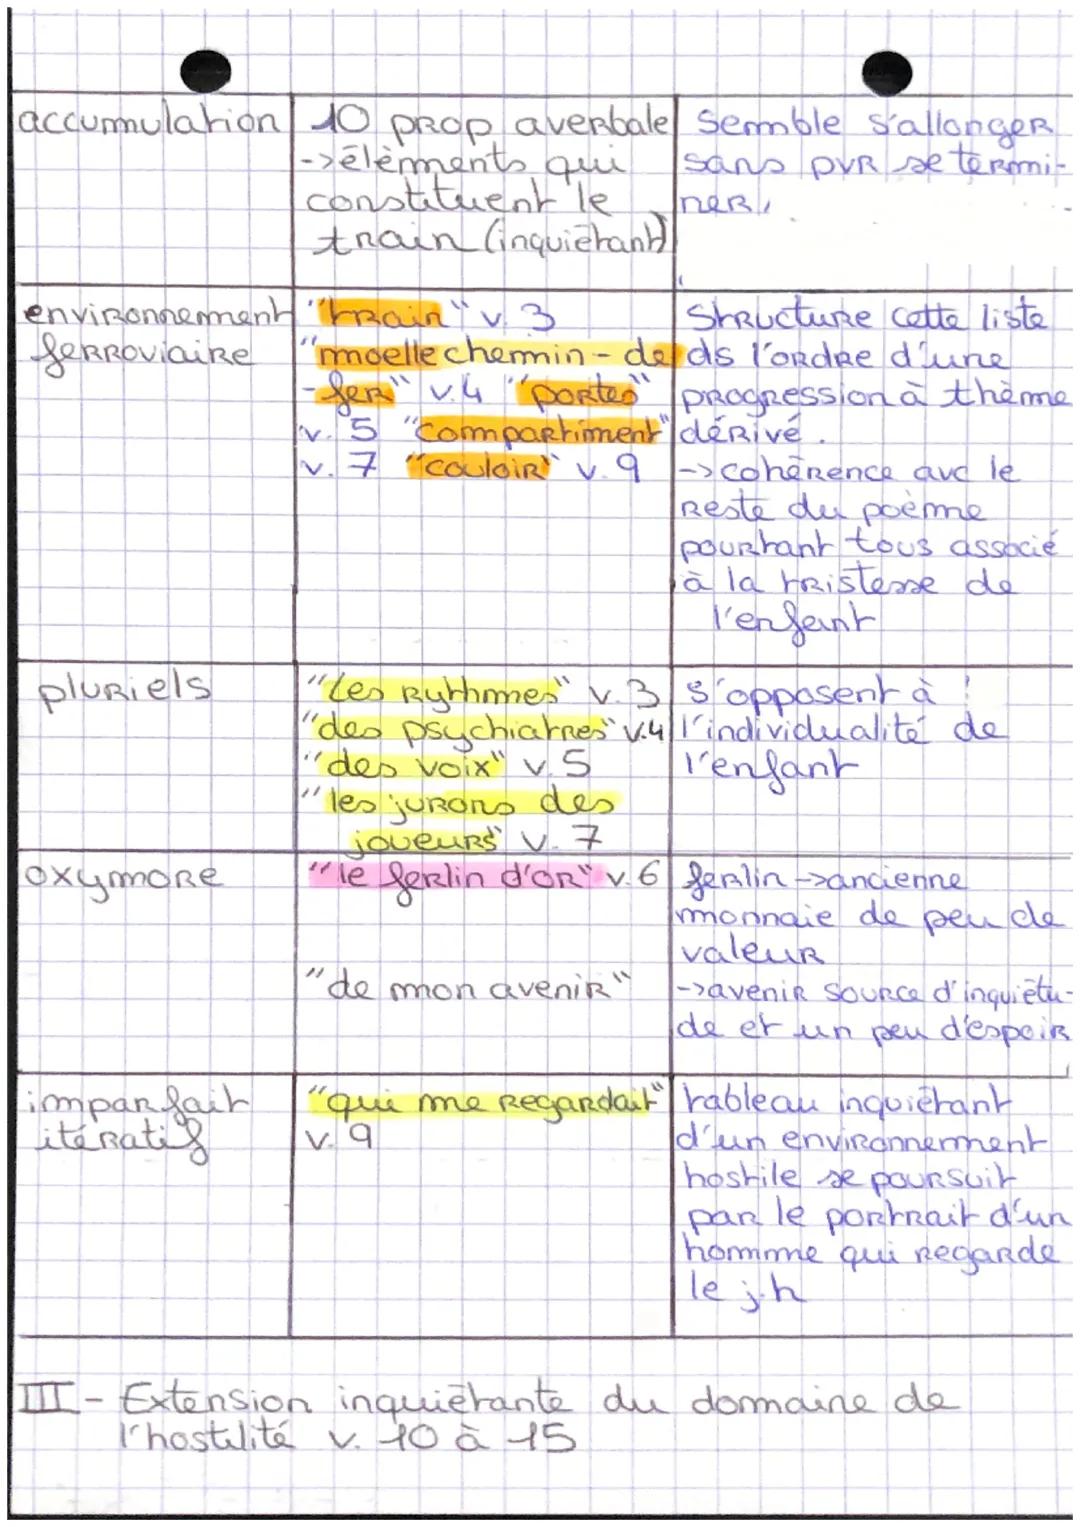 accumulation
10 prop averbale
->élèments qui
constituent le
train (inquiétant)
semble s'allonger
sans pvr se termi-
ner,
environnement
ferroviaire
"train" v. 3
"moelle chemin - de
-fer" v.4 "portes"
v. 5 "compartiment"
v. 7 "couloir" v. 9
Structure cette liste
ds l'ordre d'une
progression à thème
dérivé.
->cohérence avc le
reste du poème
pourtant tous associé
à la tristesse de
l'enfant
pluriels
"les rythmes" v. 3
"des psychiatres" v.4
"des voix" v. 5
"les jurons des
joueurs" v. 7
s'opposent à
l'individualité de
l'enfant
oxymore
"le ferlin d'or" v. 6
"de mon avenir"
ferlin ->ancienne
monnaie de peu de
valeur
->avenir source d'inquiétu-
de et un peu d'espoir
imparfait
itératif
"qui me regardait"
v. 9
tableau inquiétant
d'un environnement
hostile se poursuit
par le portrait d'un
homme qui regarde
le j.h
III - Extension inquiétante du domaine de
l'hostilité v. 10 à 15